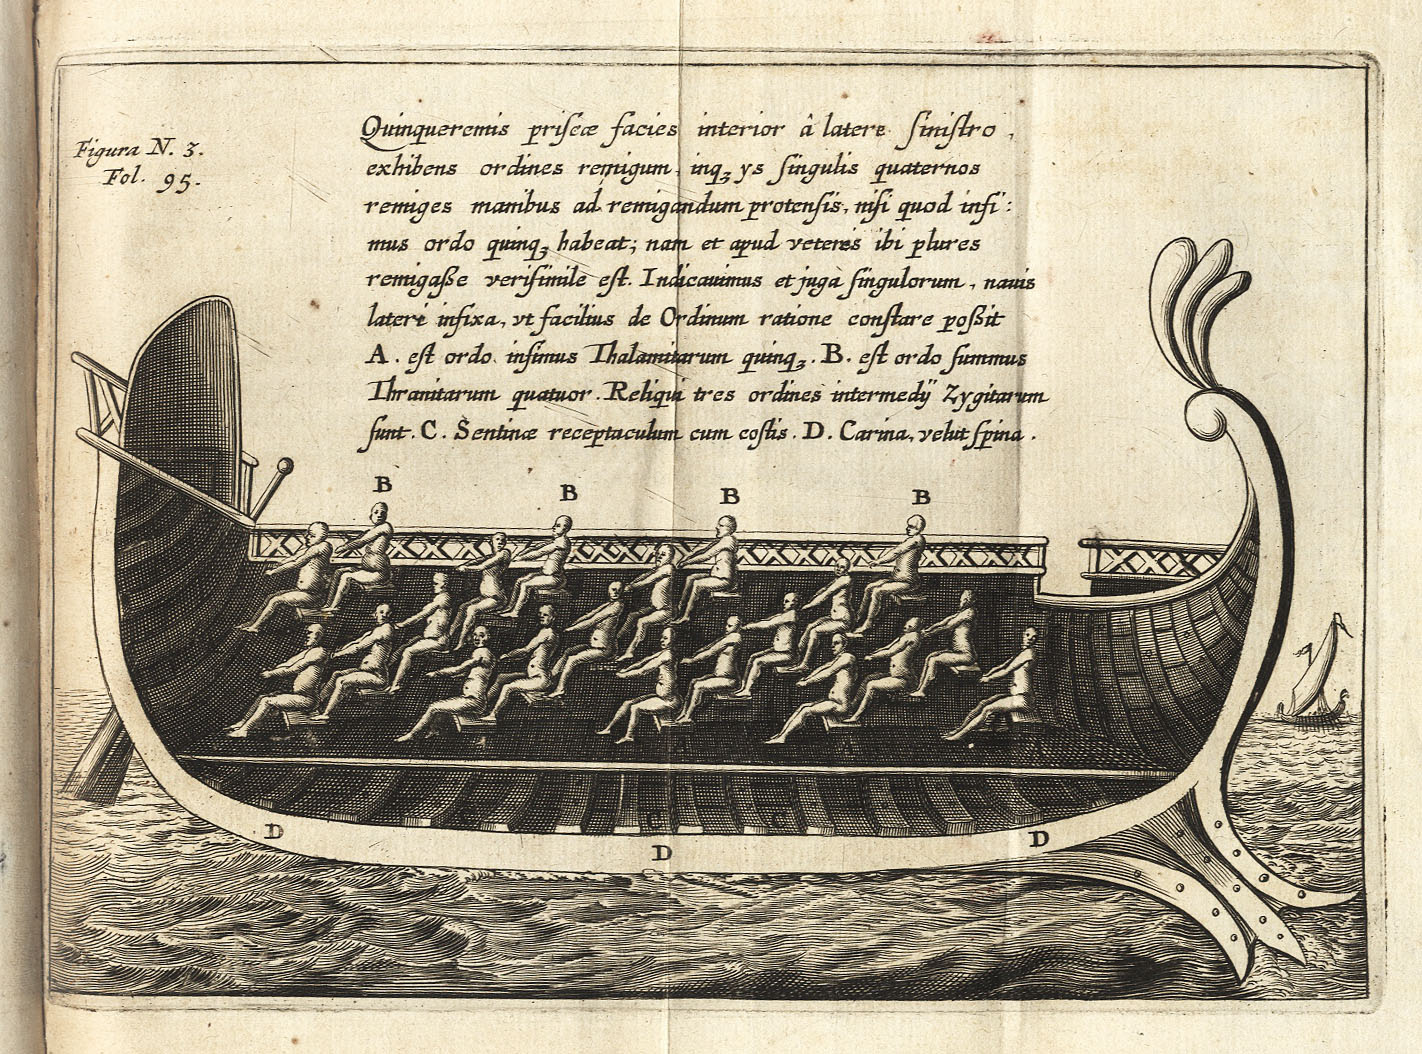 Figura N. 3.
Fol. 95.
Quinqueremis priscæ facies interior â latere sinistro,
exhibens ordines remigum, inqꝫ ys singulis quaternos
remiges manibus ad remigandum protensis, nisi quod infi:
mus ordo quinqꝫ habeat; nam et apud veteres ibi plures
remigaße verisimile est. Indicauimus et juga singulorum, nauis
lateri infixa, vt facilius de Ordinum ratione constare poßit
A. est ordo infimus Thalamitarum quinqꝫ. B. est ordo summus
Thranitarum quatuor. Reliqui tres ordines intermedÿ Zygitarum
sunt. C. Sentinæ receptaculum cum costis. D. Carina, velut spina.
B B B B
C C C
D D D